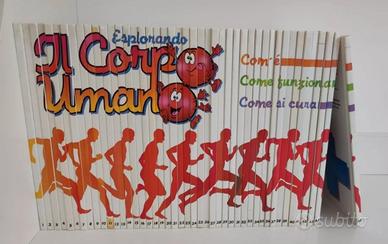 Esplorando
Il Corpo
Umano
Com'è
Come funziona
Come si cura
1 2 3 4 5 6 7 8 9 10 11 12 13 14 15 16 17 18 19 20 21 22 23 24 25 26 27 28 29 30 31 32 33
subito